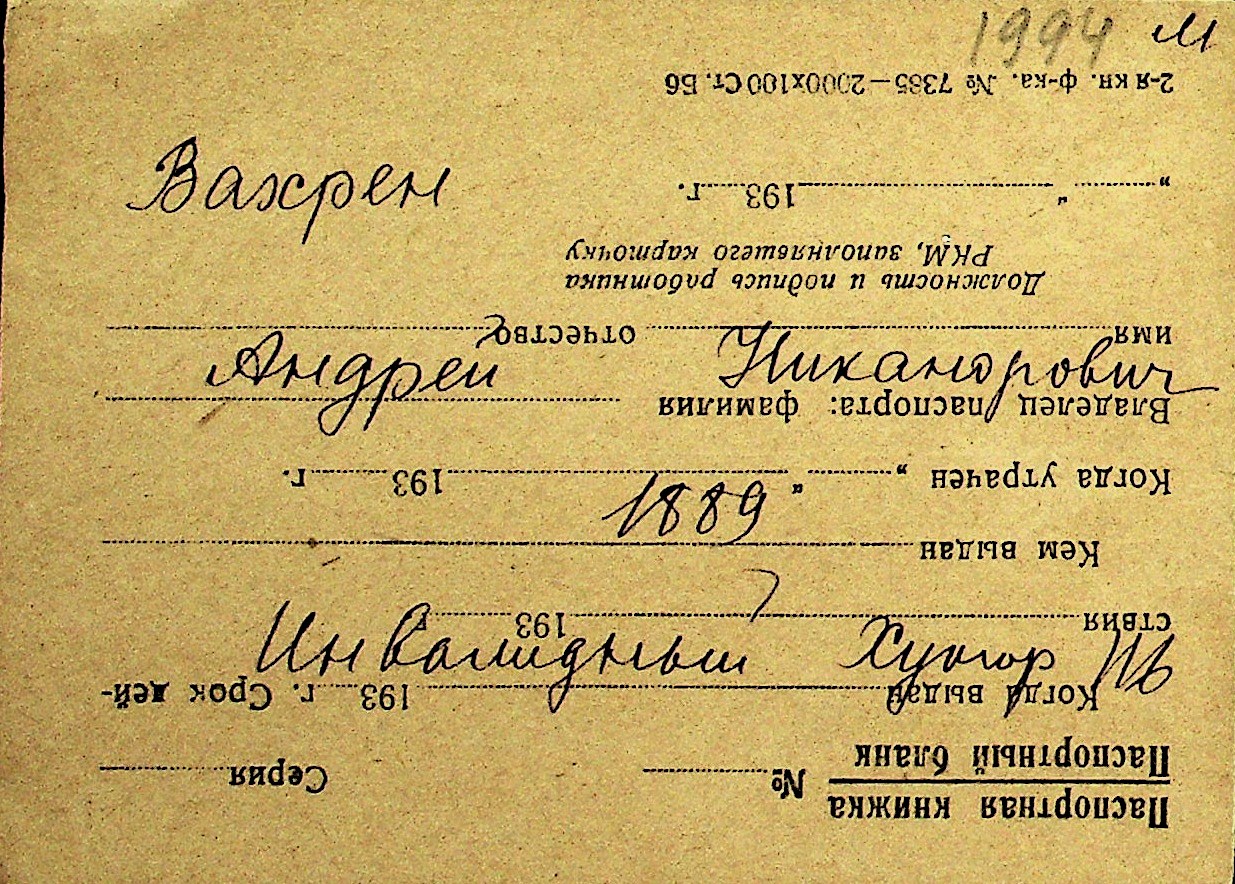 1994 м
Вахрен
Андрей Никандрович
1889
Инвалидный Хутор
Паспортная книжка
Паспортный бланк № Серия
Когда выдан 193 г. Срок дей-
ствия 193
Кем выдан
Когда утрачен „ “ 193 г.
Владелец паспорта: фамилия
имя отчество
Должность и подпись работника
РКМ, заполнявшего карточку
„ “ 193 г.
2-я кн. ф-ка. № 7385—2000х100 Ст. Б6